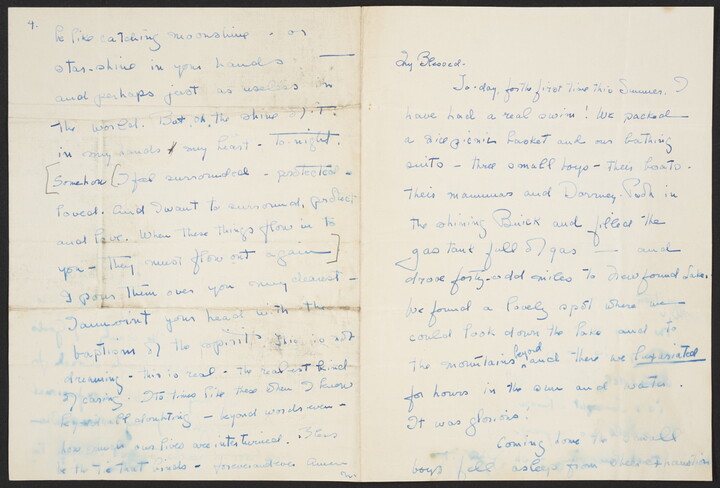 4.
be like catching moonshine - or
star-shine in your hands
and perhaps just as useless in
the world. But oh, the shine of it!
in my hands & my heart - to-night.
[Somehow I feel surrounded - protected -
loved. And I want to surround, protect
and love. When these things flow in to
you - they must flow out again]
I pour them over you my dearest -
I annoint your head with the
baptism of the spirit. This is not
dreaming - this is real - the realest kind
of caring. Its times like these when I know
beyond all doubting - beyond words even -
how our lives are intertwined. Bless
be the tie that binds - forever and ever. Amen
My Blessed -
To-day, for the first time this Summer, I
have had a real swim! We packed
a nice picnic basket and our bathing
suits - three small boys - their boats -
their mammas and Ruth in
the shining Buick and filled the
gas tank full of gas — and
drove forty-odd miles to Newfound Lake.
We found a lovely spot where we
could look down the lake and to
the mountains beyond and there we
for hours in the sun and water.
It was glorious!
Coming home the small
boys fell asleep from sheer exhaustion